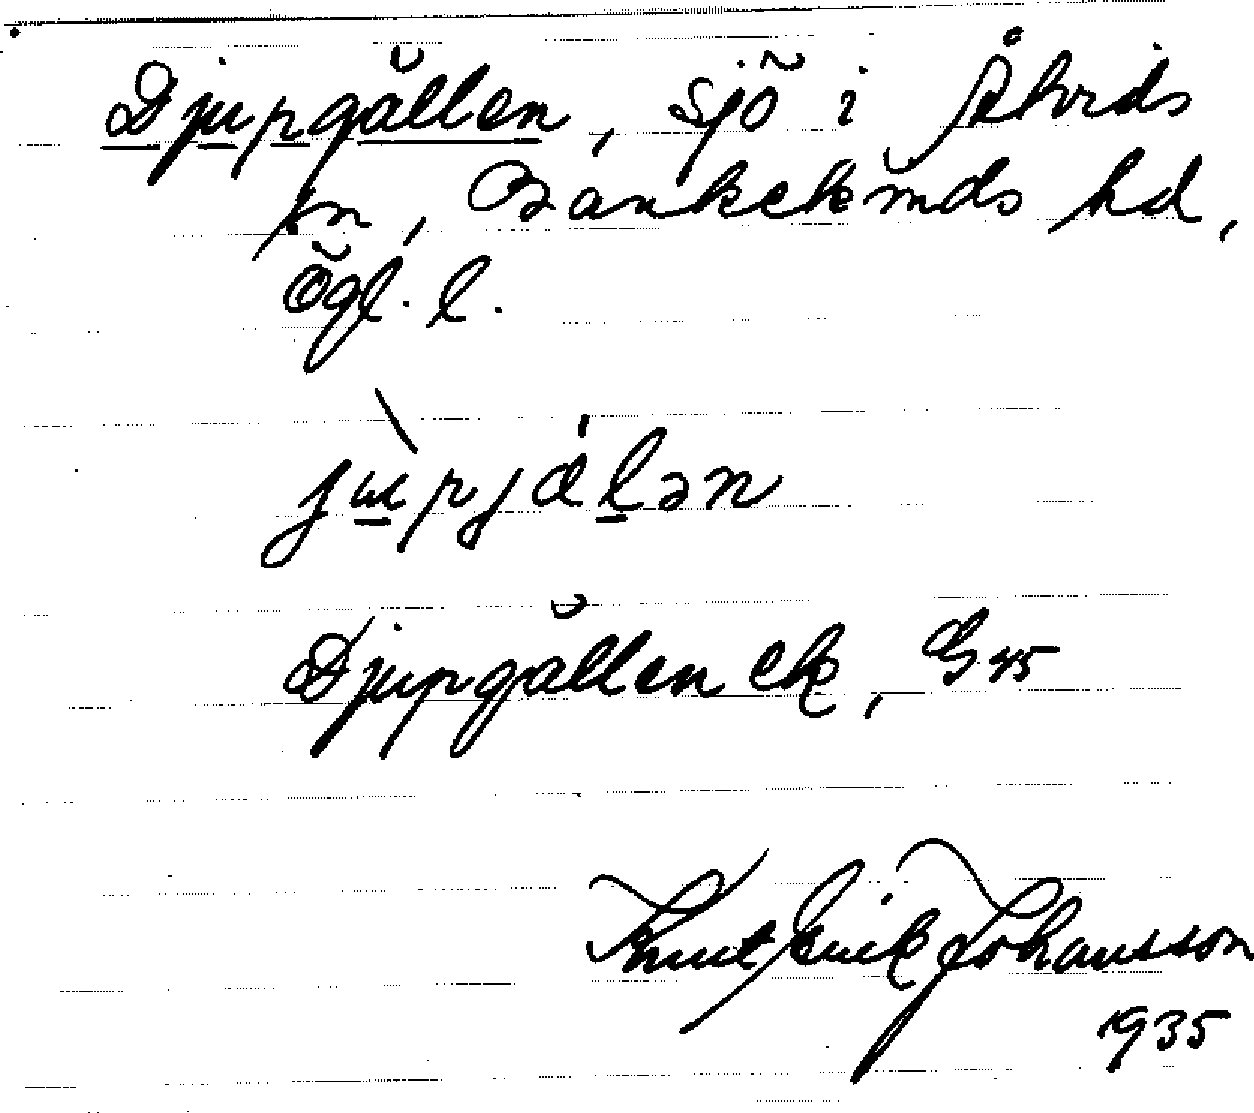 Djupgällen, sjö i Åtvids
sn, Bankekinds hd,
Ögl. l.
jupjälən
Djupgällen ek, G 45
Knut Erik Johansson
1935